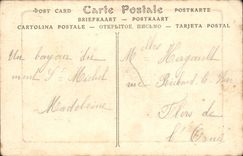 POST CARD Carte Postale POSTKARTE
BRIEFKAART — POSTKAART
CARTOLINA POSTALE — ОТКРЫТОЕ ПИСЬМО — TARJETA POSTAL
Un bonjour du
mont St Michel
Madeleine
Mlles
rue
Flers de
l'Orne